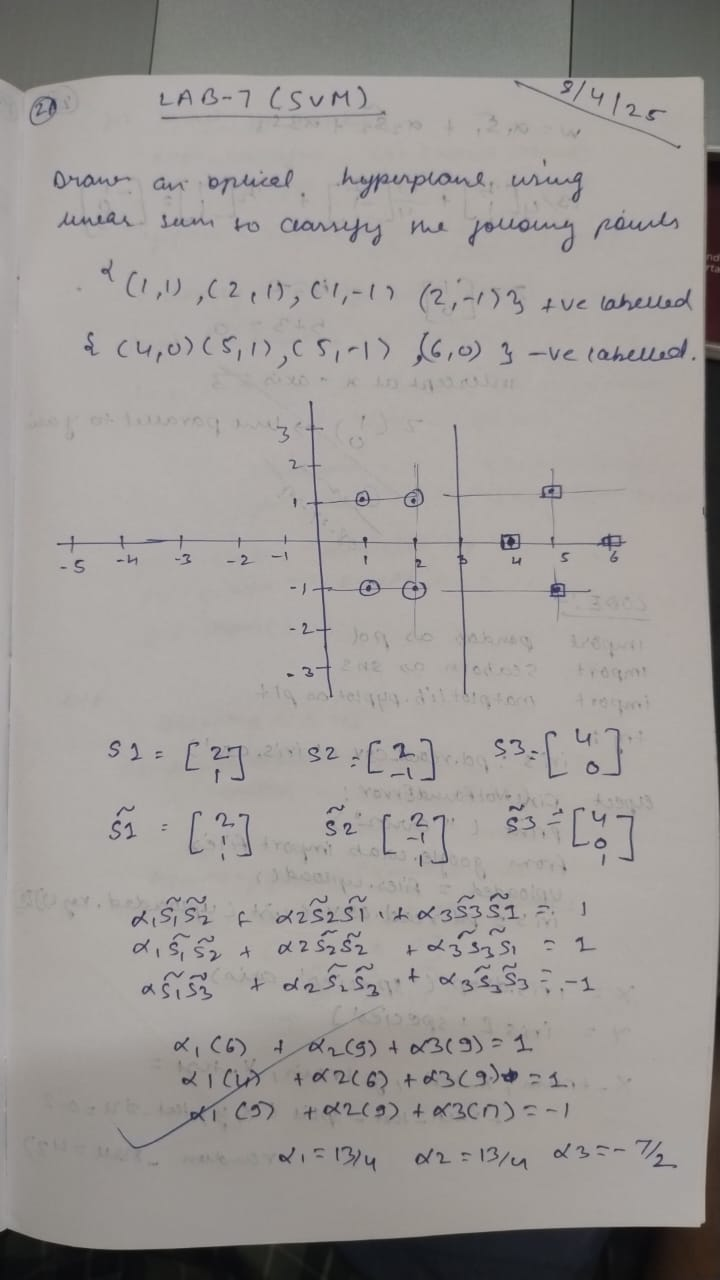 21
LAB-7 (SVM)
8/4/25
Draw an optical hyperplane, using
linear svm to classify the following points
{ (1,1), (2,1), (1,-1) (2,-1) } +ve labelled
{ (4,0) (5,1), (5,-1), (6,0) } -ve labelled.
3
2
1
-5 -4 -3 -2 -1 1 2 3 4 5 6
-1
-2
-3
S1 = [2 1] S2 = [2 -1] S3 = [4 0]
S̃1 = [2 1 1] S̃2 [2 -1 1] S̃3 = [4 0 1]
α1S̃1S̃2 + α2S̃2S̃1 + α3S̃3S̃1 = 1
α1S̃1S̃2 + α2S̃2S̃2 + α3S̃3S̃1 = 1
αS̃1S̃3 + α2S̃2S̃3 + α3S̃3S̃3 = -1
α1(6) + α2(9) + α3(9) = 1
α1(4) + α2(6) + α3(9) = 1.
α1(9) + α2(9) + α3(17) = -1
α1 = 13/4 α2 = 13/4 α3 = -7/2